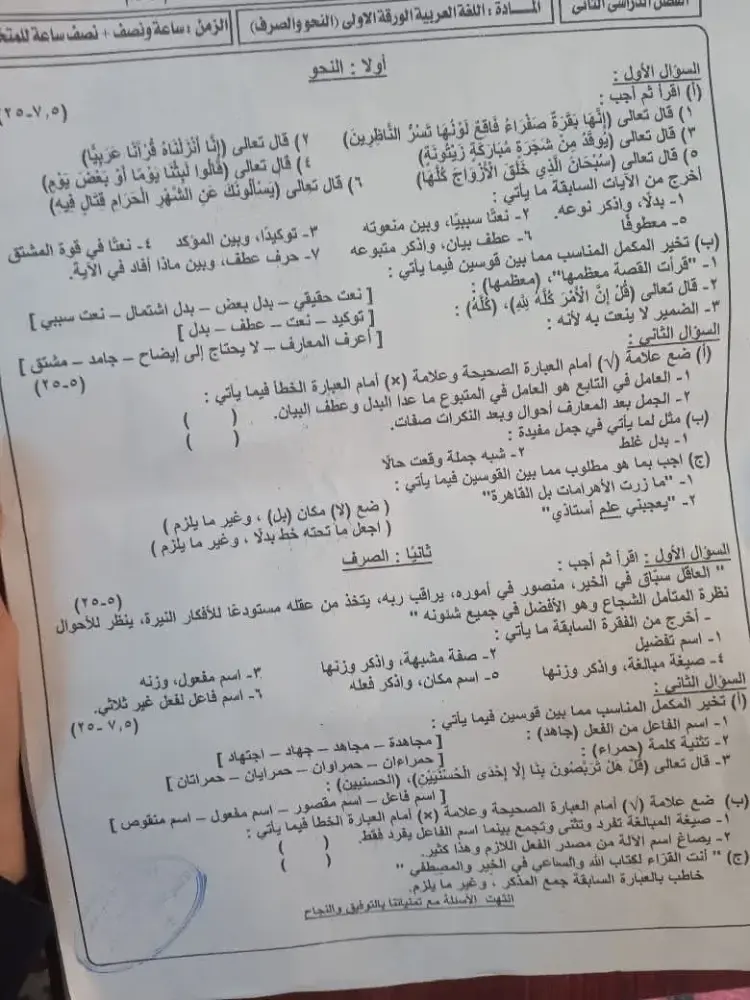 الفصل الدراسي الثاني
المـــادة : اللغة العربية الورقة الاولى (النحو والصرف)
الزمن : ساعة ونصف + نصف ساعة
أولا : النحو
(٧,٥-٢٥)
السؤال الأول :
(أ) اقرأ ثم أجب :
١) قال تعالى (إِنَّهَا بَقَرَةٌ صَفْرَاءُ فَاقِعٌ لَوْنُهَا تَسُرُّ النَّاظِرِينَ) ٢) قال تعالى (إِنَّا أَنْزَلْنَاهُ قُرْآنًا عَرَبِيًّا)
٣) قال تعالى (يُوقَدُ مِنْ شَجَرَةٍ مُبَارَكَةٍ زَيْتُونَةٍ) ٤) قال تعالى (قَالُوا لَبِثْنَا يَوْمًا أَوْ بَعْضَ يَوْمٍ)
٥) قال تعالى (سُبْحَانَ الَّذِي خَلَقَ الْأَزْوَاجَ كُلَّهَا) ٦) قال تعالى (يَسْأَلُونَكَ عَنِ الشَّهْرِ الْحَرَامِ قِتَالٍ فِيهِ)
أخرج من الآيات السابقة ما يأتي :
١- بدلًا، واذكر نوعه. ٢- نعتًا سببيًا، وبين منعوته ٣- توكيدًا، وبين المؤكد ٤- نعتًا في قوة المشتق
٥- معطوفًا ٦- عطف بيان، واذكر متبوعه ٧- حرف عطف، وبين ماذا أفاد في الآية.
(ب) تخير المكمل المناسب مما بين قوسين فيما يأتي :
١- "قرأت القصة معظمها"، (معظمها) : [ نعت حقيقي – بدل بعض – بدل اشتمال – نعت سببي ]
٢- قال تعالى (قُلْ إِنَّ الْأَمْرَ كُلَّهُ لِلَّهِ)، (كُلَّهُ) : [ توكيد – نعت – عطف – بدل ]
٣- الضمير لا ينعت به لأنه : [ أعرف المعارف – لا يحتاج إلى إيضاح – جامد – مشتق ]
السؤال الثاني :
(٥-٢٥)
(أ) ضع علامة (√) أمام العبارة الصحيحة وعلامة (×) أمام العبارة الخطأ فيما يأتي :
١- العامل في التابع هو العامل في المتبوع ما عدا البدل وعطف البيان. ( )
٢- الجمل بعد المعارف أحوال وبعد النكرات صفات. ( )
(ب) مثل لما يأتي في جمل مفيدة :
١- بدل غلط ٢- شبه جملة وقعت حالًا
(ج) اجب بما هو مطلوب مما بين القوسين فيما يأتي :
١- "ما زرت الأهرامات بل القاهرة" ( ضع (لا) مكان (بل) ، وغير ما يلزم )
٢- "يعجبني علم أستاذي" ( اجعل ما تحته خط بدلًا ، وغير ما يلزم )
ثانيًا : الصرف
السؤال الأول : اقرأ ثم أجب :
(٥-٢٥)
" العاقل سبَّاق في الخير، منصور في أموره، يراقب ربه، يتخذ من عقله مستودعًا للأفكار النيرة، ينظر للأحوال
نظرة المتأمل الشجاع وهو الأفضل في جميع شئونه "
- أخرج من الفقرة السابقة ما يأتي :
١- اسم تفضيل ٢- صفة مشبهة، واذكر وزنها ٣- اسم مفعول، وزنه
٤- صيغة مبالغة، واذكر وزنها ٥- اسم مكان، واذكر فعله ٦- اسم فاعل لفعل غير ثلاثي.
السؤال الثاني :
(٧,٥-٢٥)
(أ) تخير المكمل المناسب مما بين قوسين فيما يأتي :
١- اسم الفاعل من الفعل (جاهد) : [ مجاهدة – مجاهد – جهاد – اجتهاد ]
٢- تثنية كلمة (حمراء) : [ حمراءان – حمراوان – حمرايان – حمراتان ]
٣- قال تعالى (قُلْ هَلْ تَرَبَّصُونَ بِنَا إِلَّا إِحْدَى الْحُسْنَيَيْنِ)، (الحسنيين) :
[ اسم فاعل – اسم مقصور – اسم مفعول – اسم منقوص ]
(ب) ضع علامة (√) أمام العبارة الصحيحة وعلامة (×) أمام العبارة الخطأ فيما يأتي :
١- صيغة المبالغة تفرد وتثنى وتجمع بينما اسم الفاعل يفرد فقط. ( )
٢- يصاغ اسم الآلة من مصدر الفعل اللازم وهذا كثير. ( )
(ج) " أنت القرَّاء لكتاب الله والساعي في الخير والمصطفى "
خاطب بالعبارة السابقة جمع المذكر ، وغير ما يلزم.
انتهت الأسئلة مع تمنياتنا بالتوفيق والنجاح